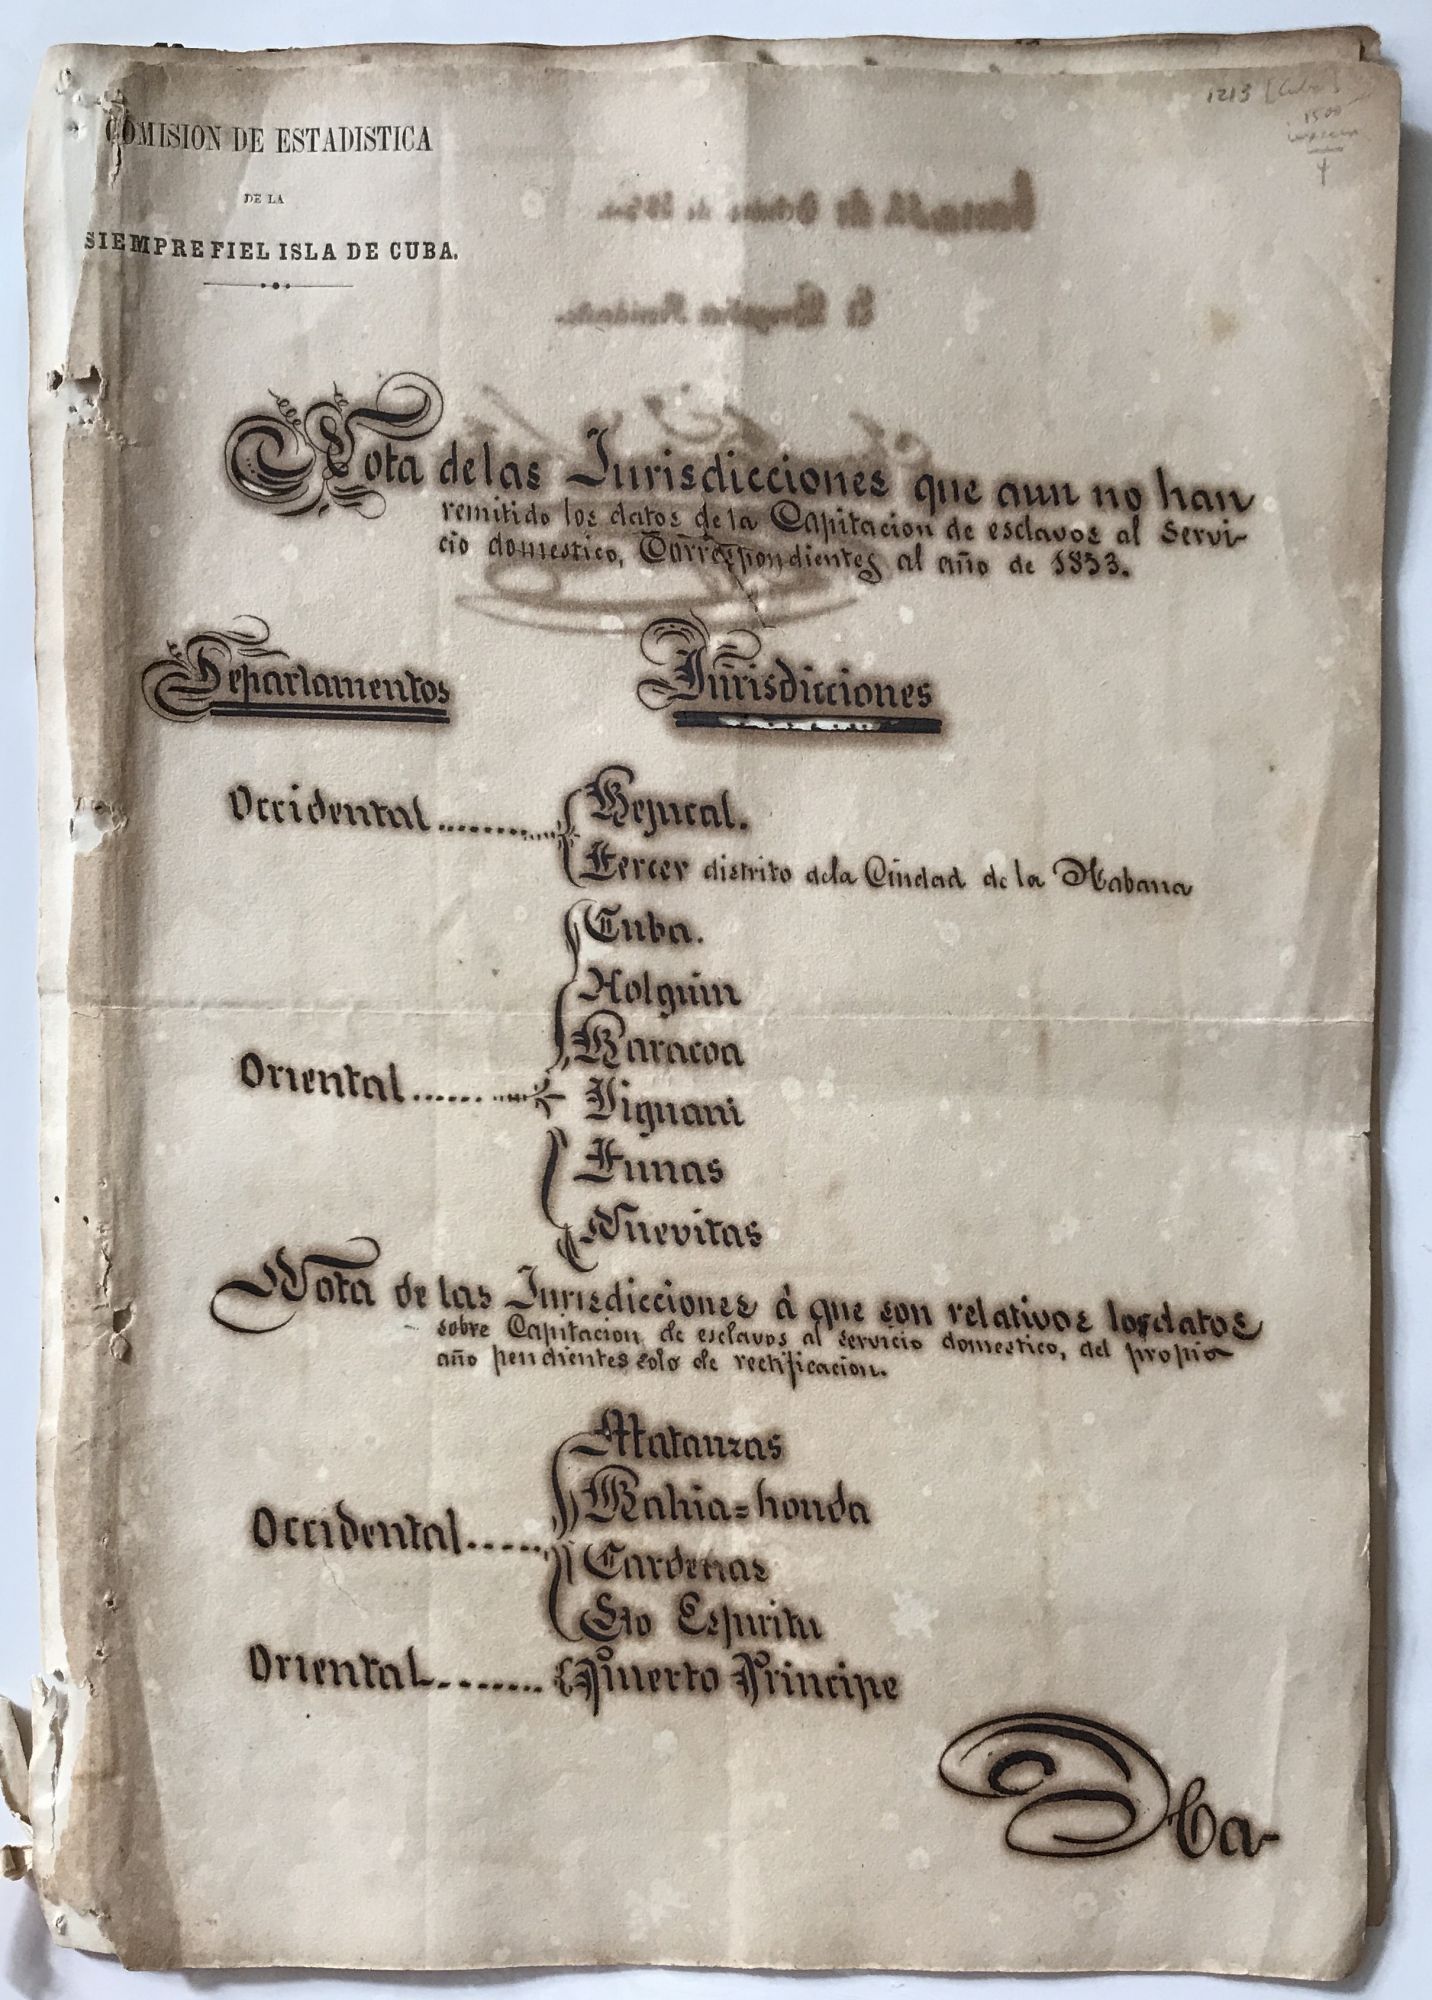 1213 [Cuba]
1500
COMISION DE ESTADISTICA
DE LA
SIEMPRE FIEL ISLA DE CUBA.
Nota de las Jurisdicciones que aun no han
remitido los datos de la Capitacion de esclavos al Servi-
cio domestico, Correspondientes al año de 1853.
Departamentos Jurisdicciones
Occidental Bejucal.
Tercer distrito de la Ciudad de la Habana
Cuba.
Holguin
Baracoa
Oriental Jiguani
Tunas
Nuevitas
Nota de las Jurisdicciones á que son relativos los datos
sobre Capitacion de esclavos al servicio domestico, del propio
año pendientes solo de rectificacion.
Matanzas
Bahia=honda
Occidental Cardenas
Sto Espiritu
Oriental Puerto Principe
Ha-